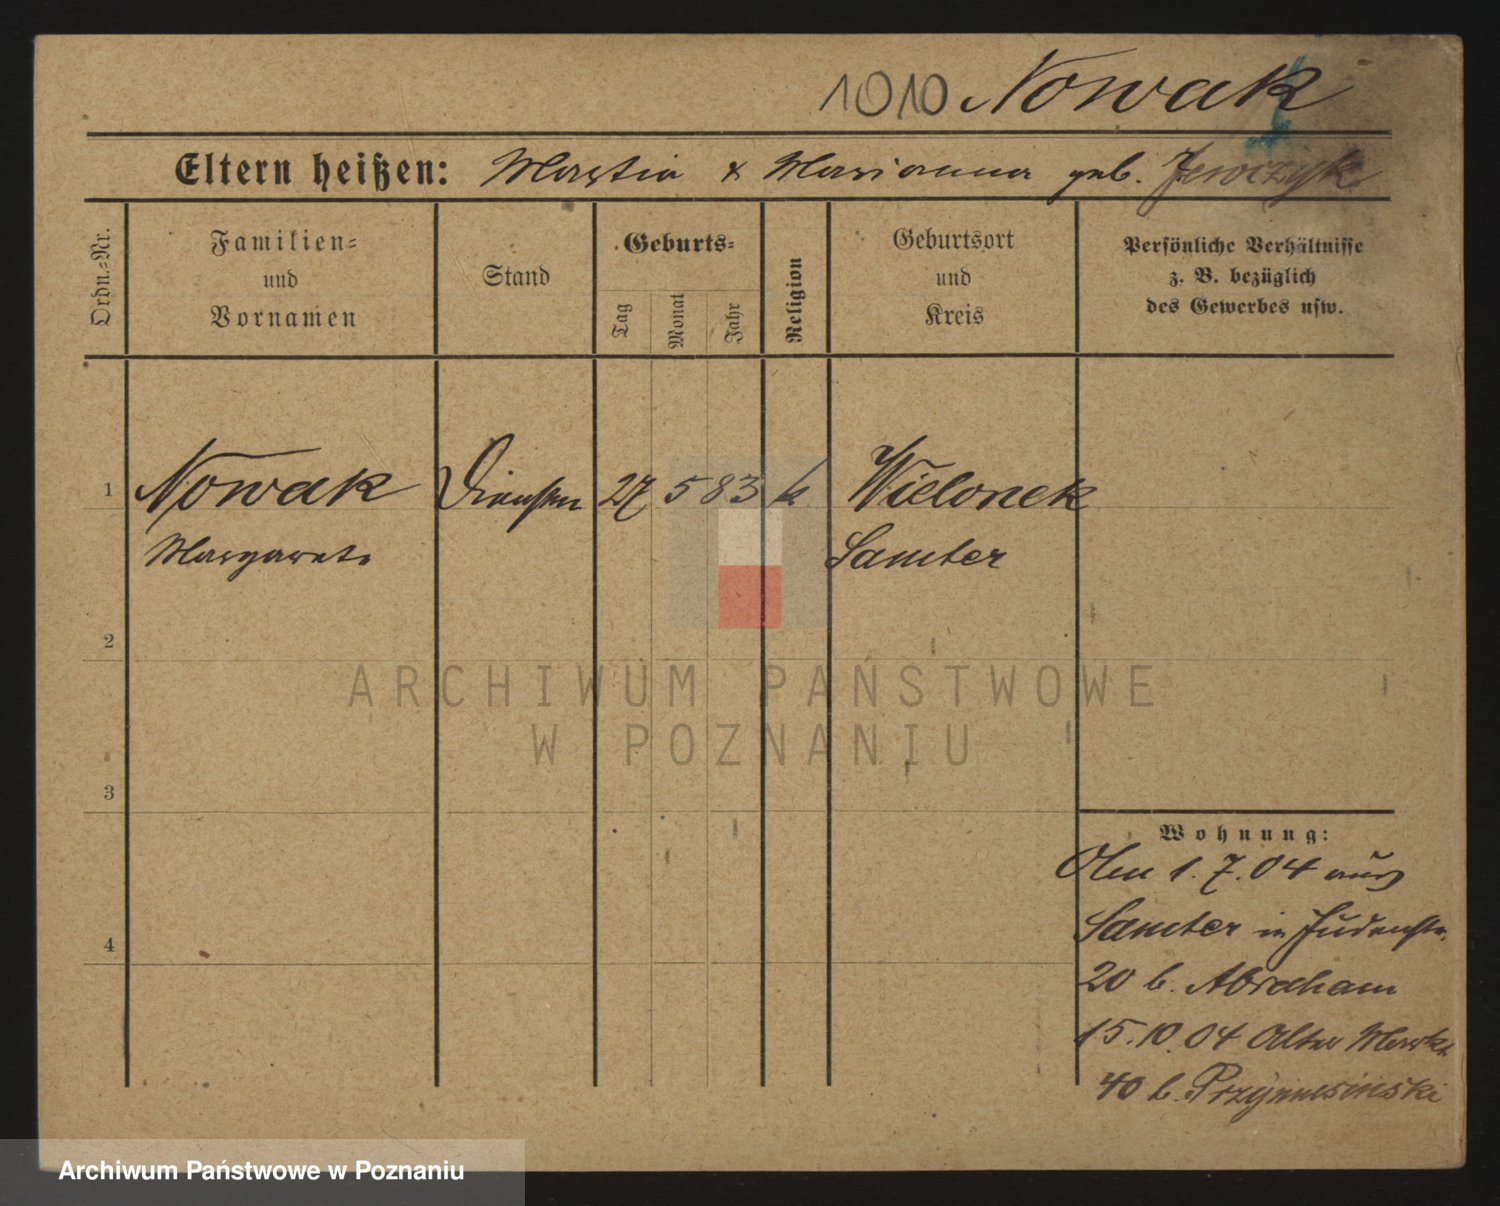 1010 Nowak
Eltern heißen: Martin & Marianna geb.
Ordn.-Nr.
Familien-
und
Vornamen
Stand
Geburts-
Tag
Monat
Jahr
Religion
Geburtsort
und
Kreis
Persönliche Verhältnisse
z. B. bezüglich
des Gewerbes usw.
1 Nowak 27 5 83 k Wielonek
Margarete Samter
2
3
4
Wohnung:
1.7.04 aus
Samter in Judenstr.
20 b. Abraham
15.10.04 Alter Markt
40 b.
ARCHIWUM PAŃSTWOWE
W POZNANIU
Archiwum Państwowe w Poznaniu